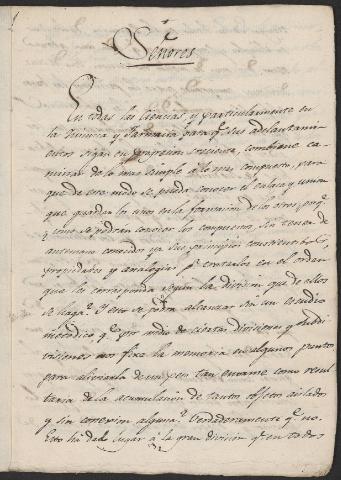 Señores
En todas las ciencias y particularmente en
la Quimica y Farmacia para q.e sus adelantami
entos sigan en progresion creciente, combiene ca
minar de lo mas simple a lo mas compuesto, para
que de este modo se pueda conocer el enlace y union
que guardan los unos en la formacion de los otros, porq.
y como se podran conocer los compuestos, sin tener de
antemano conocidos ya sus principios constitutibos,
propiedades y analogias p.a tratarlos con el orden
que les corresponda segun la division que de ellos
se haga? Y esto se podra alcanzar sin un estudio
metodico q.e por medio de ciertas divisiones y subdi
visiones nos fixe la memoria en algunos puntos
para aliviarla de un peso tan enorme como resul
taria de la acumulacion de tantos objetos aislados
y sin conexion alguna? Verdaderamente q.e no.
Esto ha dado lugar á la gran division q.e en todos